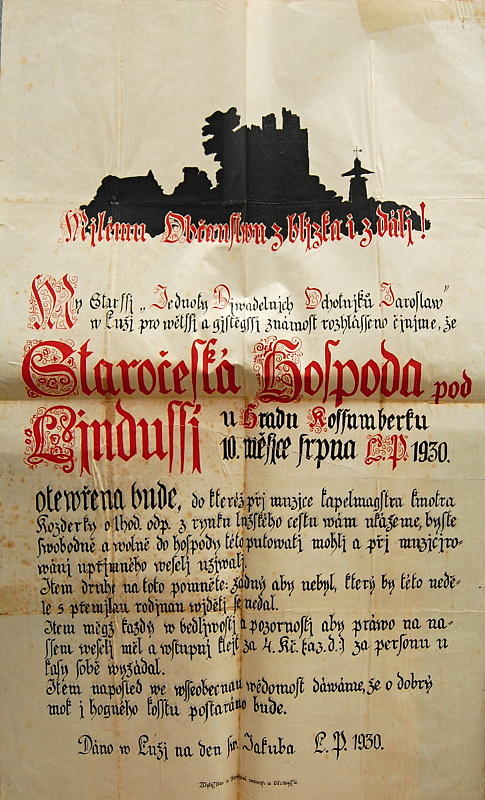 Mjlému Občanstwu z bljzka i z dálj!
My Starssj „Jednoty Djwadelnjch Ochotnjků Jaroslaw"
w Luži pro wětssj a gistěgssj známost rozhlásseno činjme, že
Staročeská Hospoda pod
Ljndussj u Hradu Kossumberku
10. měsjce srpna L.P. 1930.
otewřena bude, do kteréž při muzice kapelmagstra kmotra
Kozderky o lhod. odp. z rynku lužského cestu wám ukážeme, byste
swobodně a wolně do hospody této putowatj mohli a při muzicjro-
wánj upřjmného weselj užjwali.
Item druhé na toto pomněte: žádný aby nebyl, který by této nedě-
le s přemjlau rodjnau wjděti se nedal.
Item mégž každý w bedliwosti a pozornosti aby práwo na na-
ssem weselj měl a wstupnj klejt za 4. Kč. za personu u
kasy sobě wyžádal.
Item naposled we wsseobecnau wědomost dáwáme, že o dobrý
mok j hogného kosstu postaráno bude.
Dáno w Luži na den sw. Jakuba L.P. 1930.